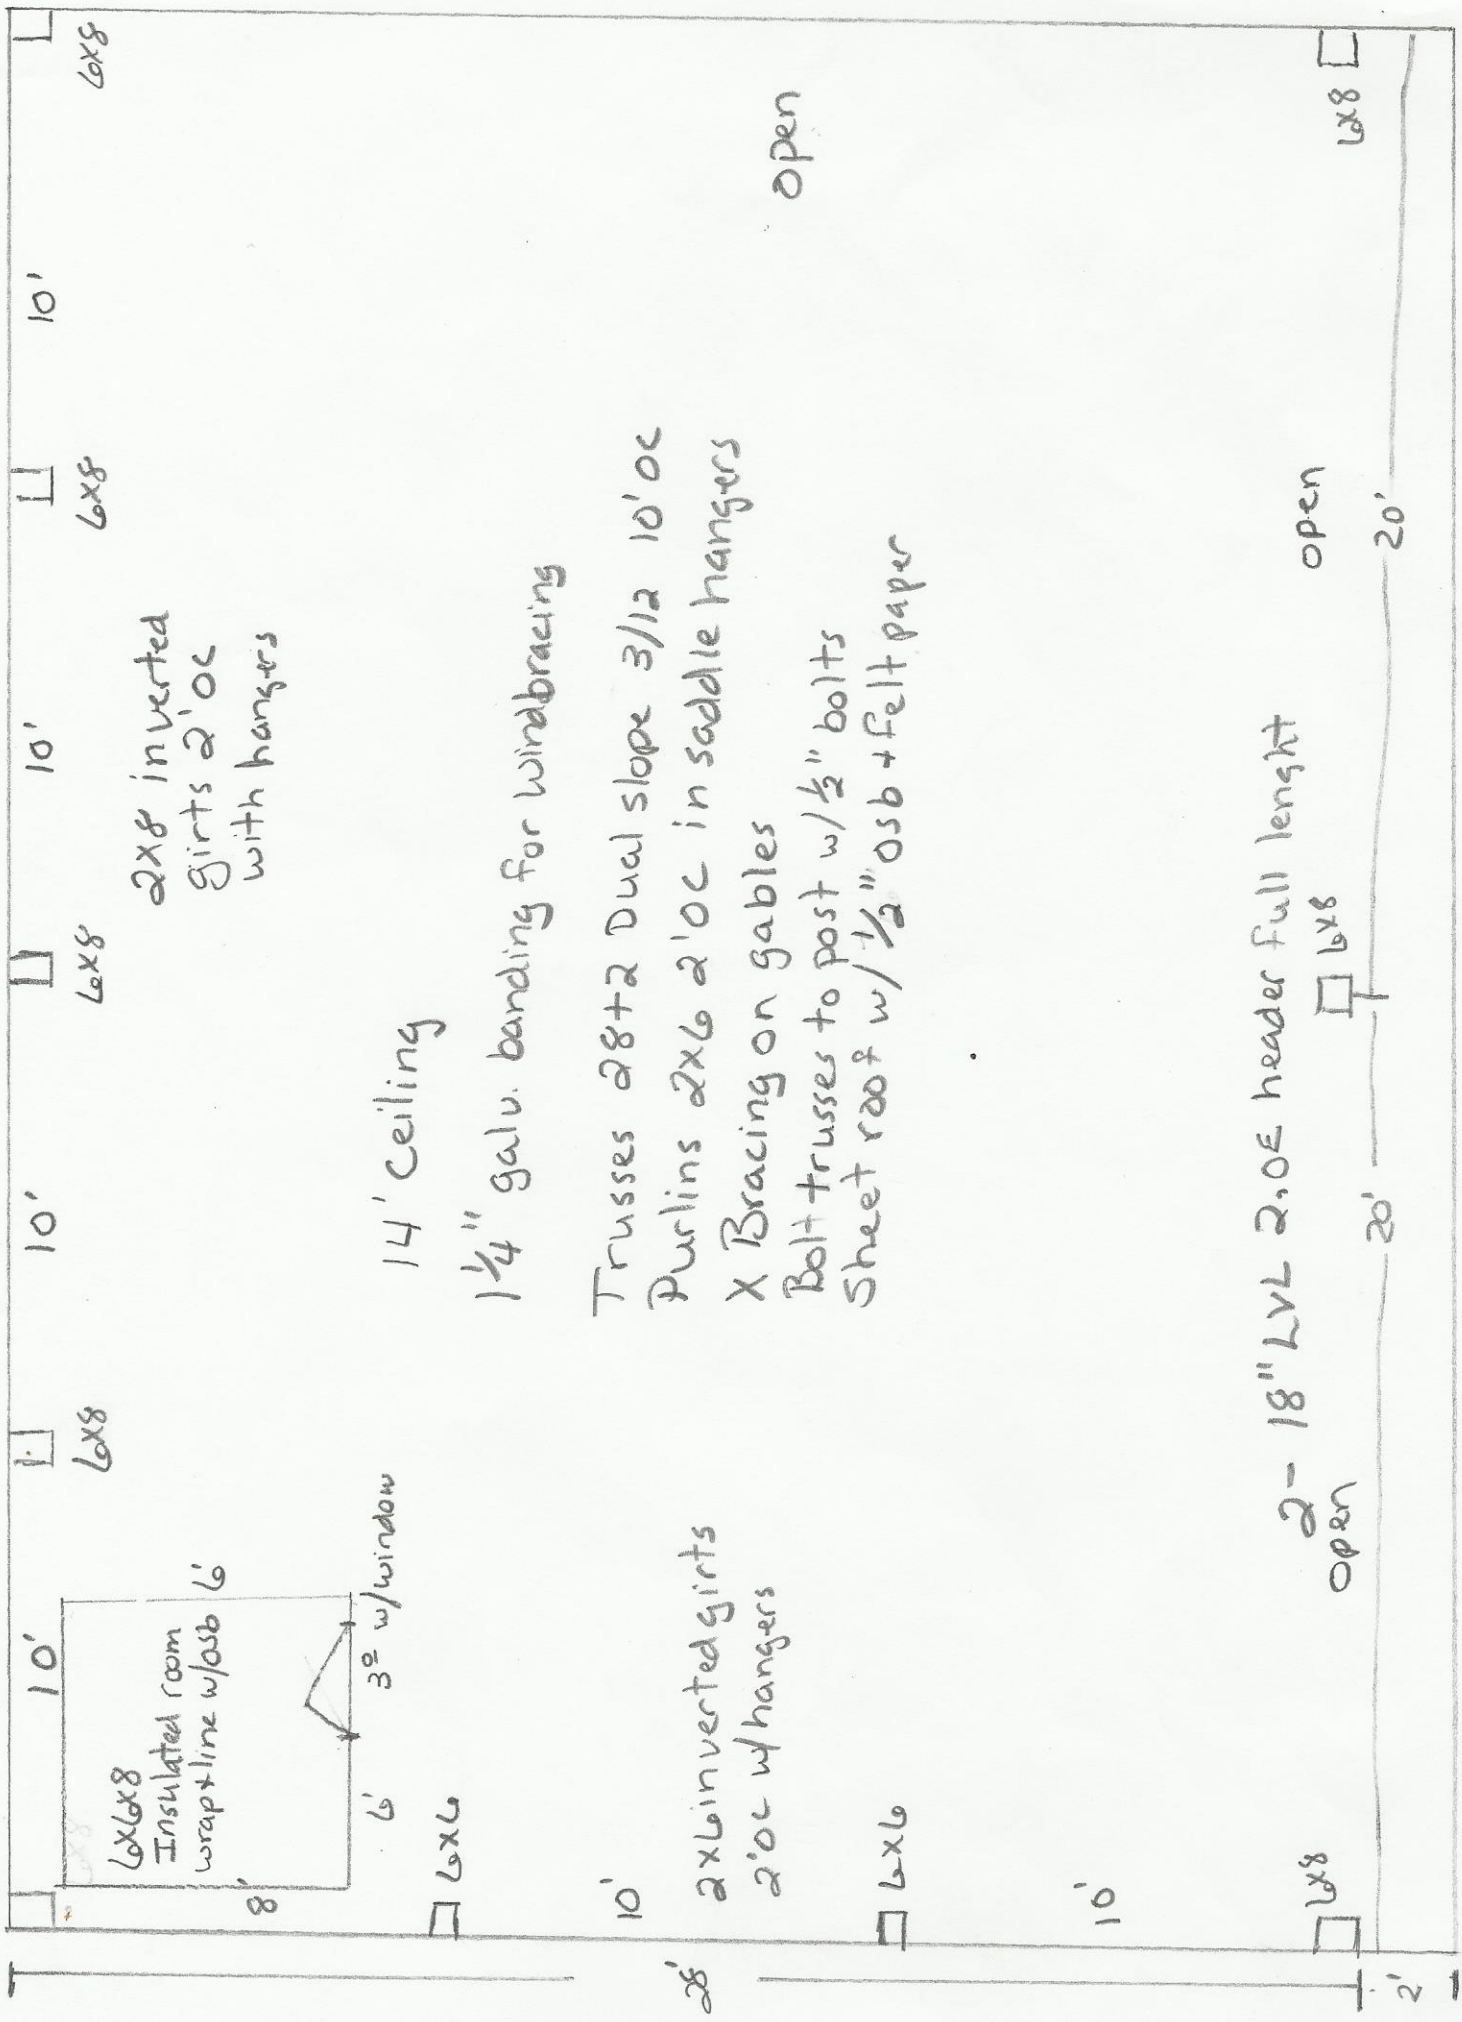 10'
10'
10'
10'
6x8
6x8
6x8
6x8
6x6x8
Insulated room
wrap+line w/osb
6'
8'
6'
3º w/window
2x8 inverted
girts 2'oc
with hangers
14' Ceiling
1 1/4" galv. banding for windbracing
Trusses 28+2 Dual slope 3/12 10'oc
Purlins 2x6 2'oc in saddle hangers
X Bracing on gables
Bolt trusses to post w/ 1/2" bolts
Sheet roof w/ 1/2" osb + felt paper
6x6
10'
2x6 inverted girts
2'oc w/hangers
6x6
10'
open
2- 18" LVL 2.0E header full lenght
open
open
6x8
6x8
6x8
20'
20'
28'
2'